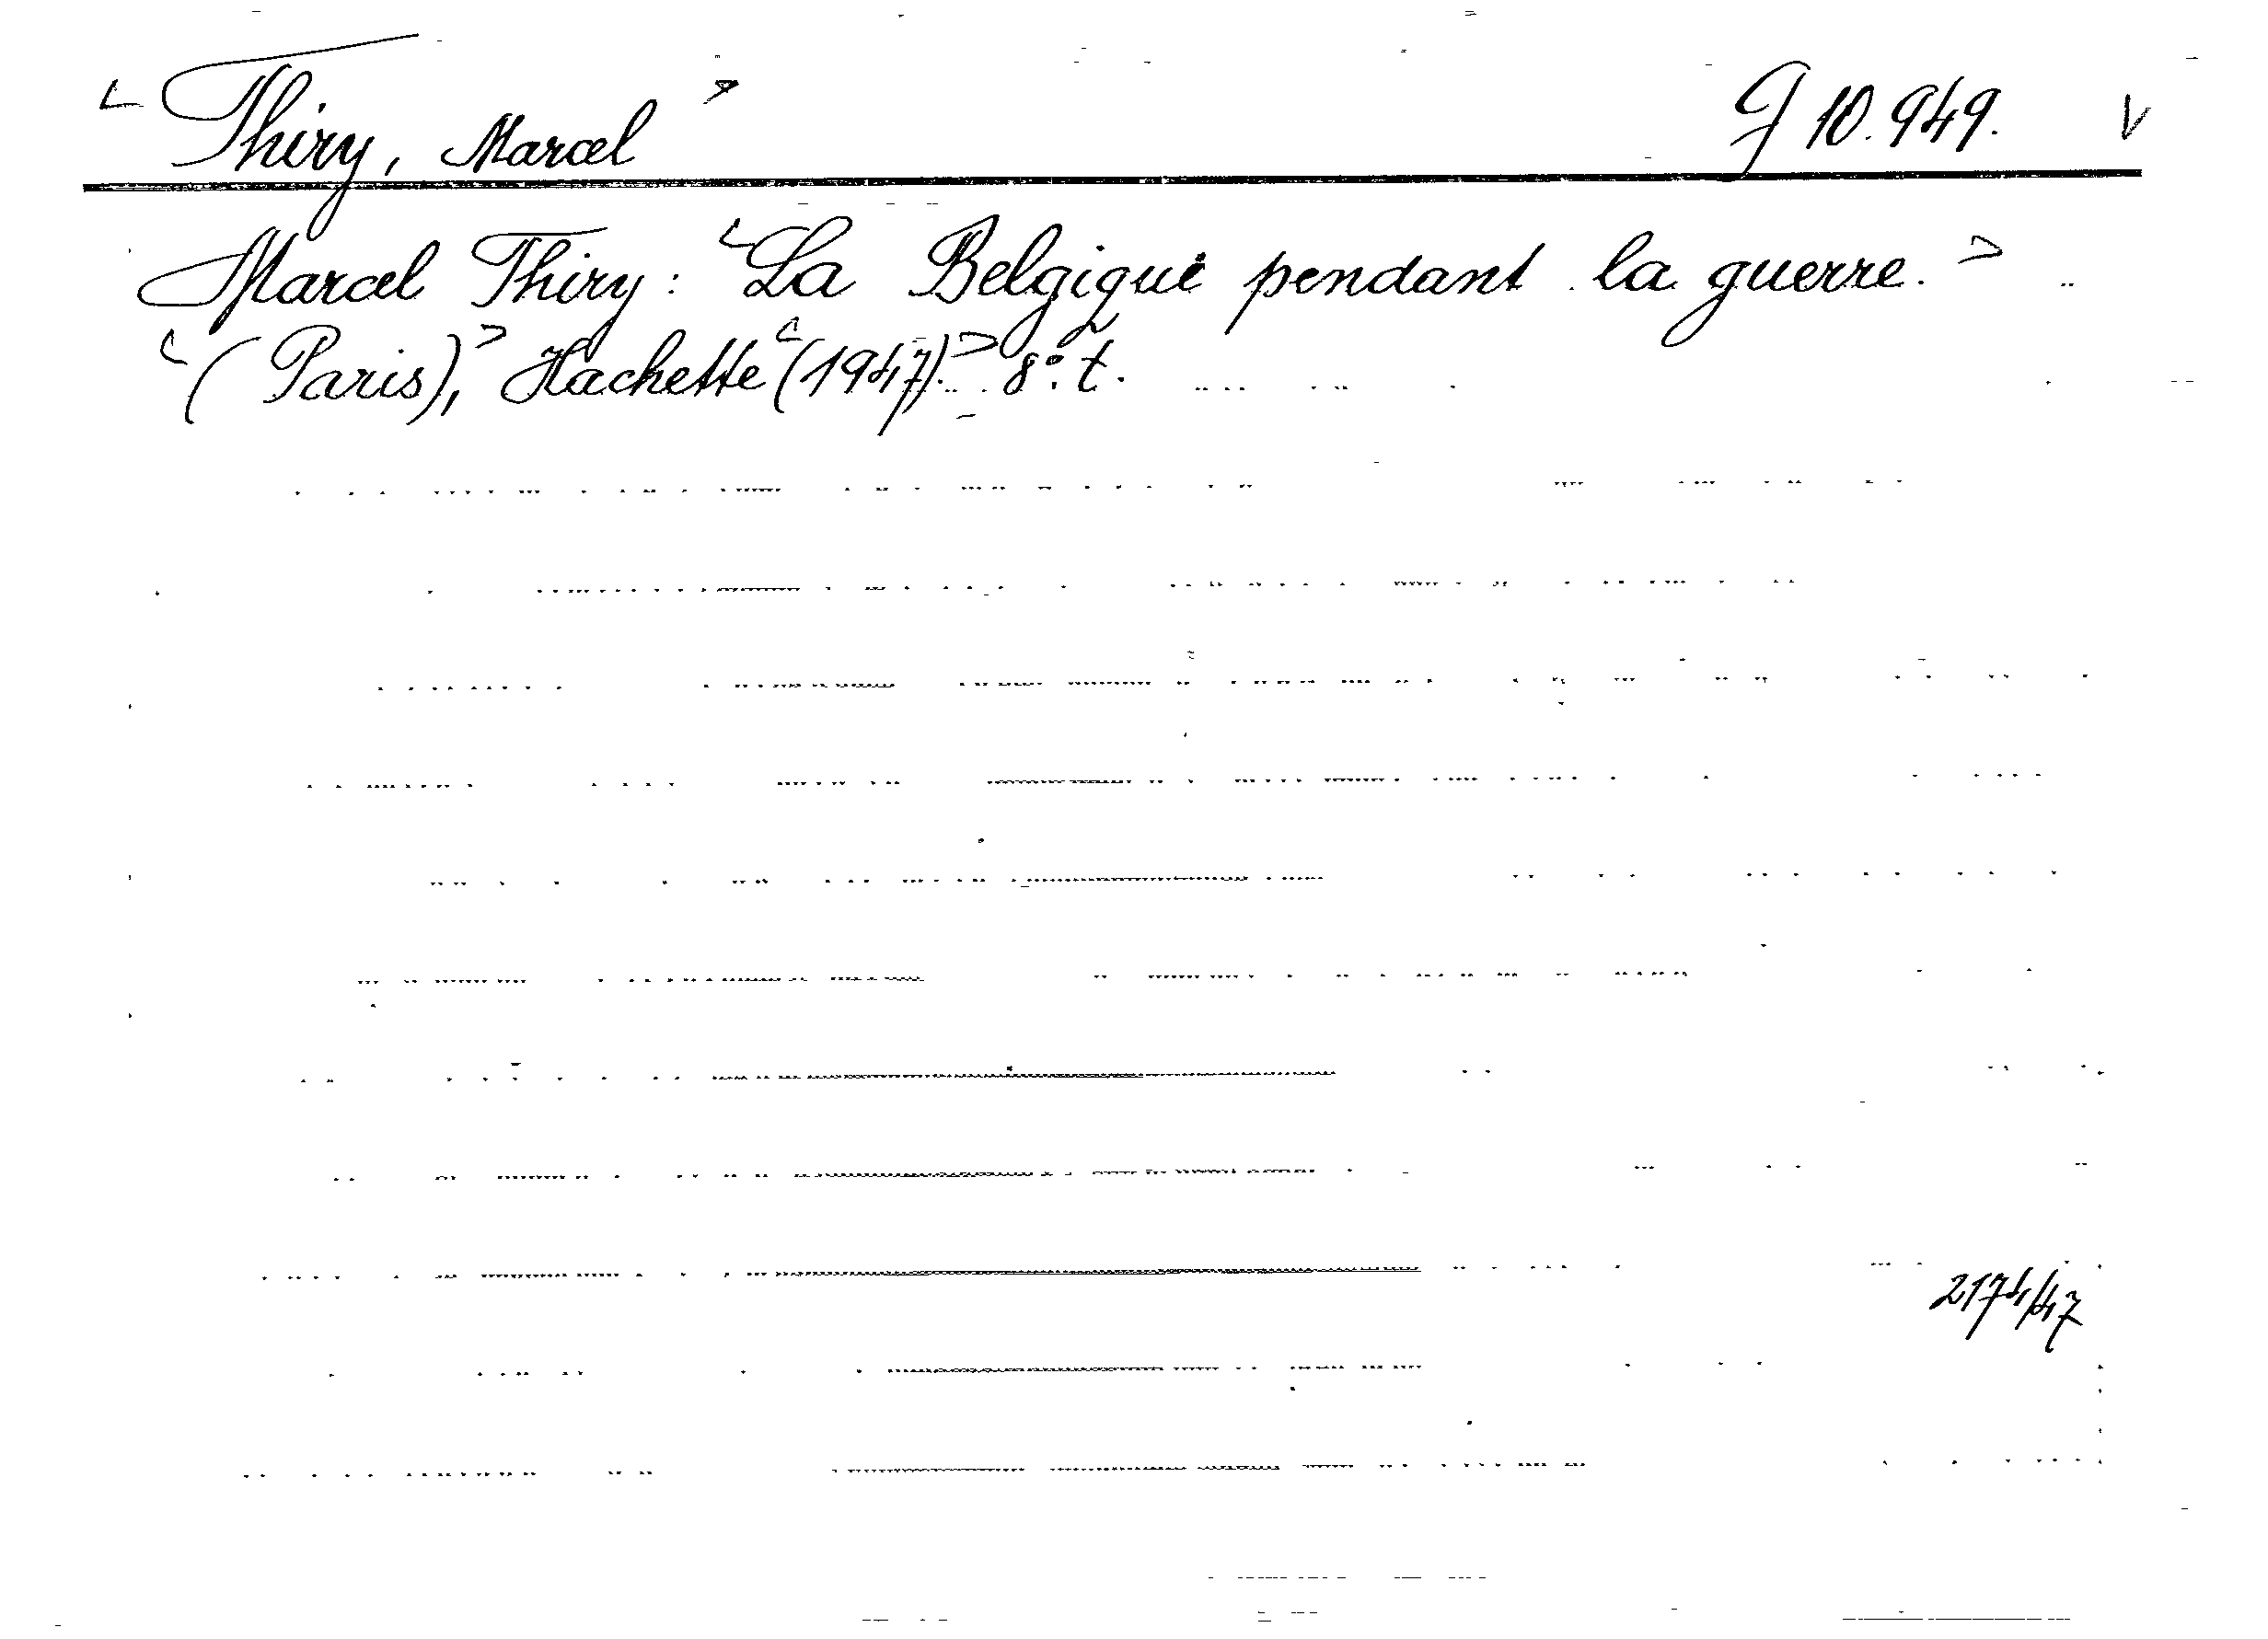 < Thiry, Marcel > J 10.949. V
Marcel Thiry: < La Belgique pendant la guerre. >
< (Paris), > Hachette < (1947). > 8º. t.
2174/47